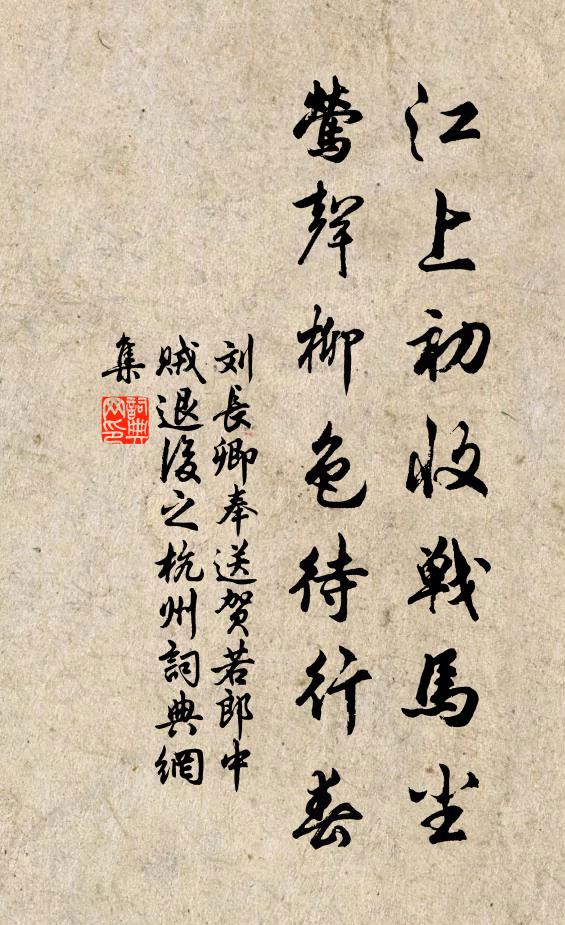 江上初收戰馬尘
鶯聲柳色待行春
刘長卿奉送贺若郎中
贼退後之杭州詞典網
集
詞典
网印